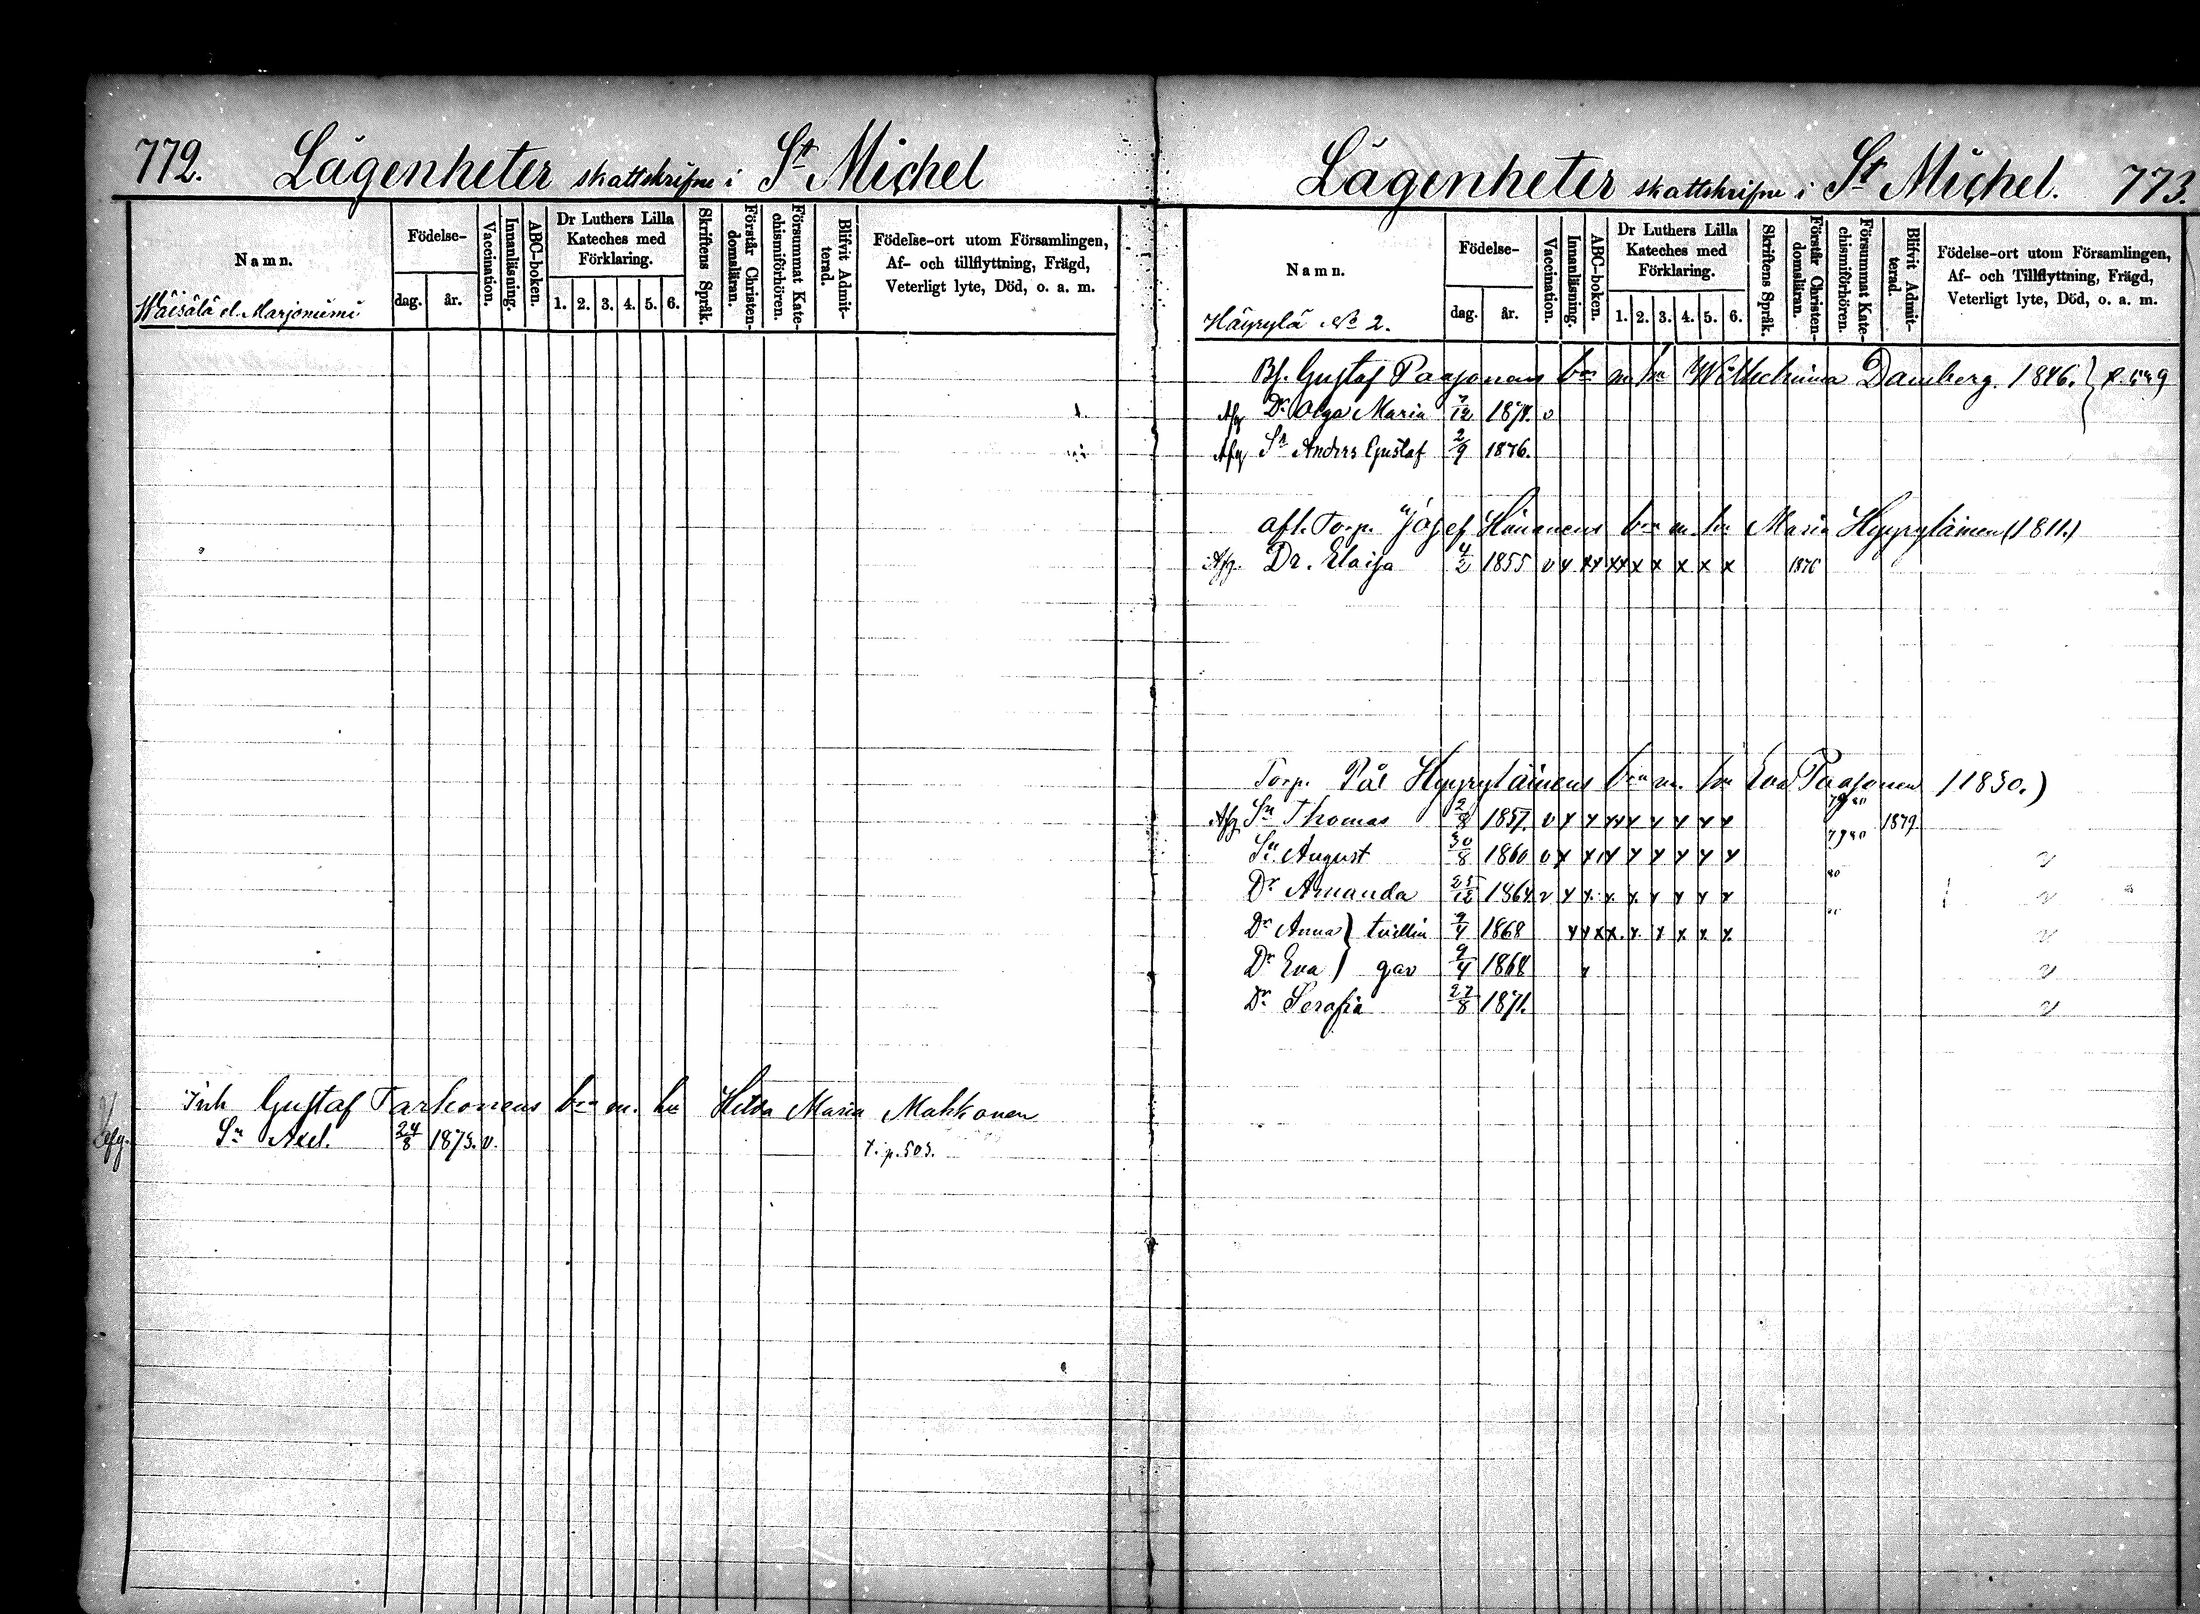 772. Lägenheter skattskrifne i St Michel
Namn.
Födelse-
dag. år.
Vaccination.
Innanläsning.
ABC-boken.
Dr Luthers Lilla
Kateches med
Förklaring.
1. 2. 3. 4. 5. 6.
Skriftens Språk.
Förstår Christen-
domsläran.
Försummat Kate-
chismiförhören.
Blifvit Admit-
terad.
Födelse-ort utom Församlingen,
Af- och tillflyttning, Frägd,
Veterligt lyte, Död, o. a. m.
Wäisälä el. Marjoniemi
Inh Gustaf Tarkonens bn m. hu Hilda Maria Makkonen
Afg. Sn Axel. 24/8 1873. v. p. 503.
Lägenheter skattskrifne i St Michel. 773.
Namn.
Födelse-
dag. år.
Vaccination.
Innanläsning.
ABC-boken.
Dr Luthers Lilla
Kateches med
Förklaring.
1. 2. 3. 4. 5. 6.
Skriftens Språk.
Förstår Christen-
domsläran.
Försummat Kate-
chismiförhören.
Blifvit Admit-
terad.
Födelse-ort utom Församlingen,
Af- och Tillflyttning, Frägd,
Veterligt lyte, Död, o. a. m.
Häyrylä No 2.
Bf. Gustaf Paajonens bn m hu Wilhelmina Damberg. 1846.
Afg Dr Olga Maria 7/12 1874. v
Afg Sn Anders Gustaf 2/9 1876.
afl. Torp. Josef Hänänens bn m. hu Maria Hyyryläinen (1811.)
Afg. Dr. Eloisa 4/2 1855 v x xx xx x x x x x 1876
Torp. Pål Hyyryläinens bn m. hu Eva Paajonen (1830.)
Afg Sn Thomas 2/8 1857. v x x xx x x x x x 79 80 1879.
Sn August 30/8 1860 v x x xx x x x x x 79 80
Dr Amanda 25/12 1864 v x x. x. x. x x x x 80
Dr Anna } tvillin 9/4 1868 x x x x. x. x x x x.
Dr Eva } gar 9/4 1868 x
Dr Serafia 27/8 1871.